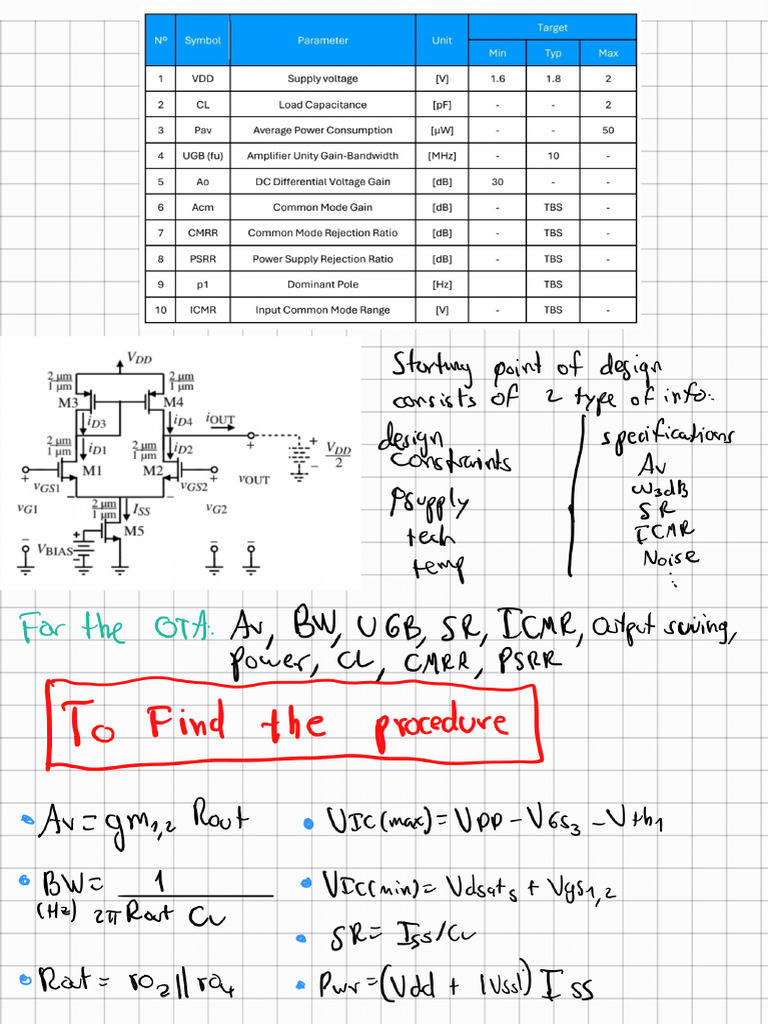 Nº Symbol Parameter Unit Target
Min Typ Max
1 VDD Supply voltage [V] 1.6 1.8 2
2 CL Load Capacitance [pF] - - 2
3 Pav Average Power Consumption [µW] - - 50
4 UGB (fu) Amplifier Unity Gain-Bandwidth [MHz] - 10 -
5 Ao DC Differential Voltage Gain [dB] 30 - -
6 Acm Common Mode Gain [dB] - TBS -
7 CMRR Common Mode Rejection Ratio [dB] - TBS -
8 PSRR Power Supply Rejection Ratio [dB] - TBS -
9 p1 Dominant Pole [Hz] TBS
10 ICMR Input Common Mode Range [V] - TBS -
VDD
2 µm 2 µm
1 µm 1 µm
M3 M4
iD3 iD4 iOUT
2 µm 2 µm
1 µm 1 µm
iD1 iD2
VDD
2
M1 M2
vGS1 vGS2 vOUT
2 µm
1 µm
ISS
vG1 vG2
M5
VBIAS
Starting point of design
consists of 2 type of info:
design
constraints
Psupply
tech
temp
specifications
Av
w3dB
SR
ICMR
Noise
:
For the OTA: Av, BW, UGB, SR, ICMR, Output swing,
power, CL, CMRR, PSRR
To Find the procedure
• Av = gm1,2 Rout
• BW = 1
(Hz) 2π Rout CL
• Rout = ro2 || ro4
• VIC(max) = VDD - VGS3 - Vth1
• VIC(min) = Vdsat5 + Vgs1,2
• SR = Iss/CL
• Pwr = (Vdd + |Vss|) Iss